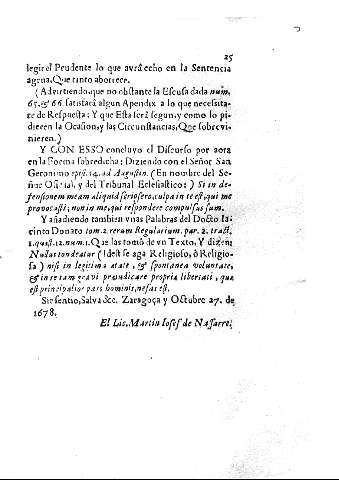 25
legir el Prudente lo que avrà echo en la Sentencia
agena, Que tanto aborrece.
(Advirtiendo, que no obstante la Escusa dada num.
65. & 66. satisfarà algun Apendix a lo que necessita-
re de Respuesta: Y que Esta serà segun, y como lo pi-
dieren la Ocasion, y las Circunstancias, Que sobrevi-
nieren.)
Y CON ESSO concluyo el Discurso por aora
en la Forma sobredicha: Diziendo con el Señor San
Geronimo epist. 14. ad Augustin. (En nombre del Se-
ñor Oficial, y del Tribunal Eclesiastico:) Si in de-
fensionem meam aliquid scripsero, culpa in te est, qui me
provocasti; non in me, qui respondere compulsus sum.
Y añadiendo tambien unas Palabras del Docto Ia-
cinto Donato tom. 2. rerum Regularium. par. 2. tract.
1. quæst. 12. num. 1. Que las tomò de un Texto, Y dizen:
Nullus tondeatur (Idest se aga Religioso, ò Religio-
sa) nisi in legitima ætate, & spontanea voluntate,
& in re tam gravi præiudicare propria libertati, quæ
est principalior pars hominis, nefas est.
Sic sentio, Salva &c. Zaragoça y Octubre 27. de
1678.
El Lic. Martin Iosef de Nassarre.